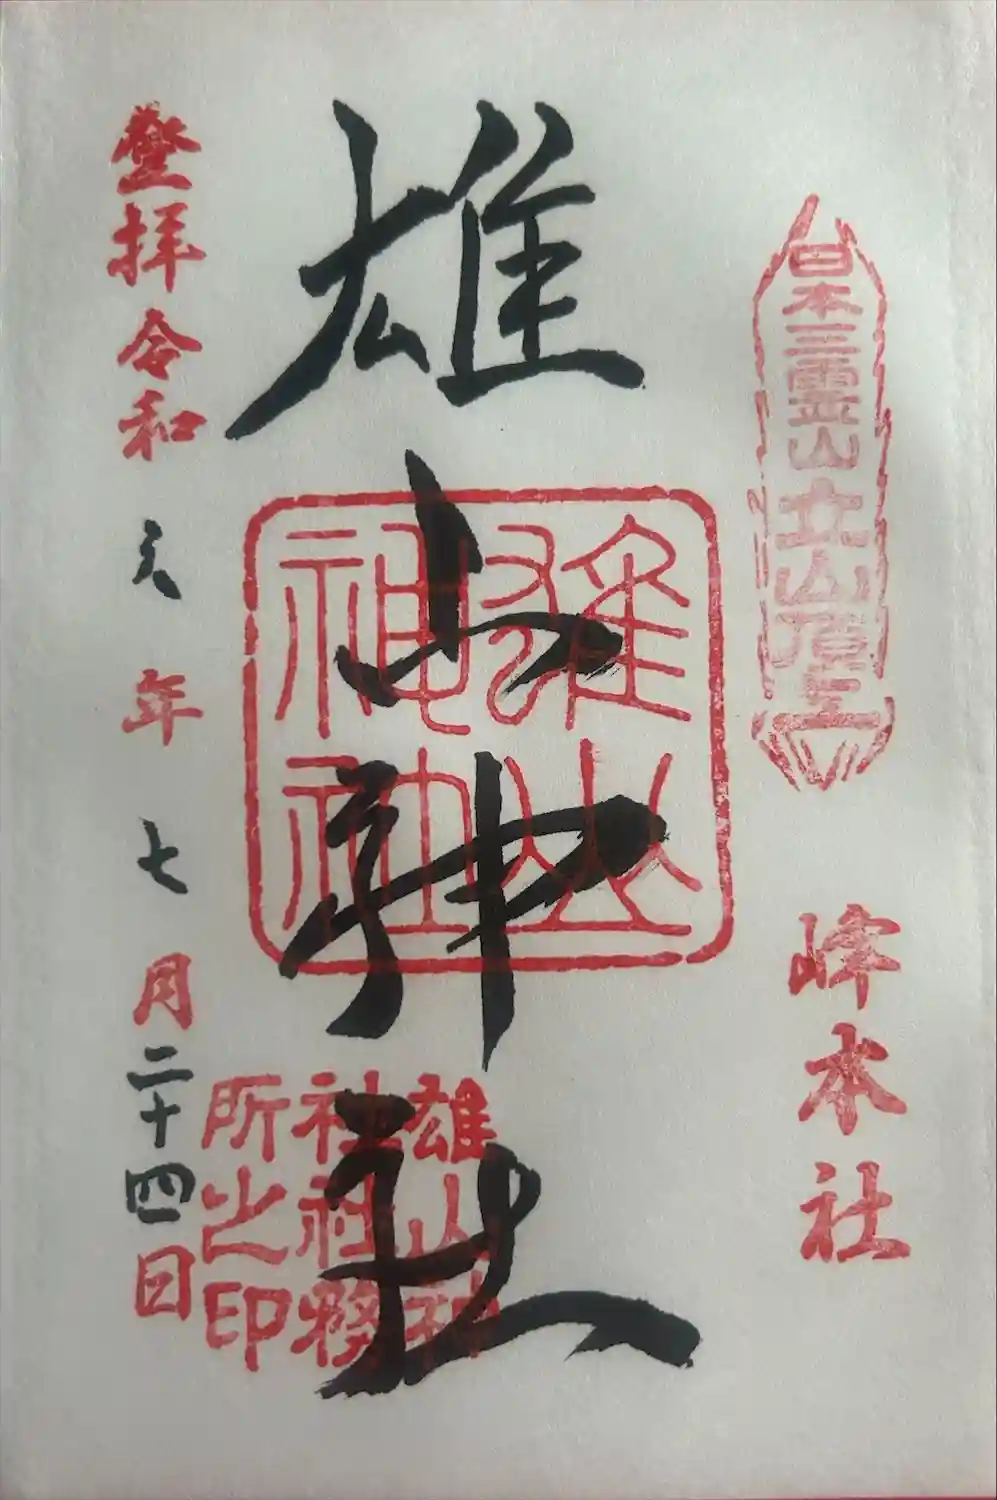 日本三霊山立山頂上
峰本社
雄山神社
雄山
神社
雄山神
社社務
所之印
登拝令和元年七月二十四日